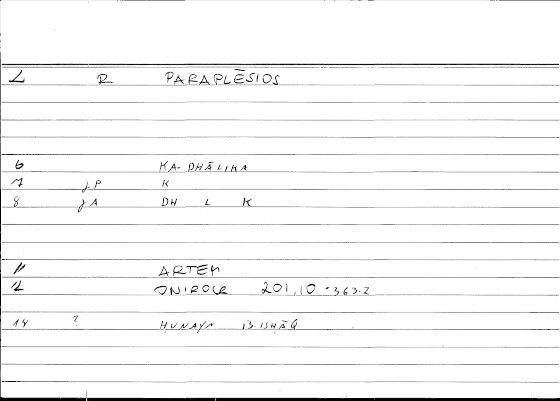 L R PARAPLĒSIOS
6 KA-DHĀLIKA
7 J.P K
8 JA DH L K
11 ARTEM
12 ONIROCR 201,10 - 363.2
14 ? HUNAYN B.ISHĀQ